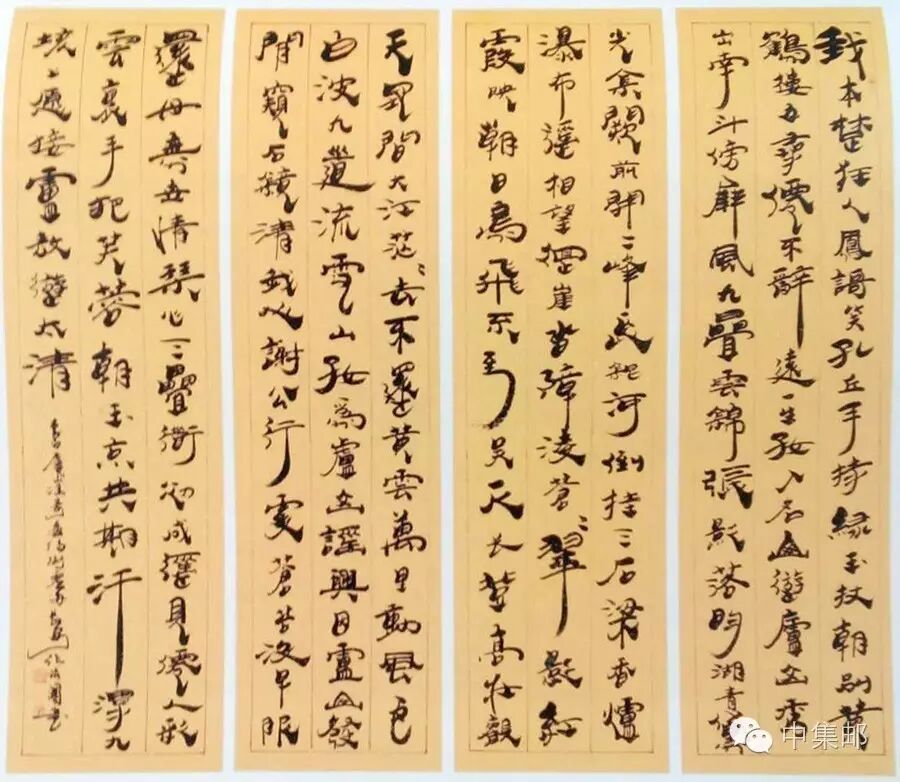 我本楚狂人鳳謌笑孔丘手持綠玉杖朝別黃
鶴樓五尋僊不辭遠一生好入名山遊廬山秀
出南斗傍屏風九疊雲錦張影落明湖青黛
光金闕前開二峰長銀河倒挂三石梁香爐
瀑布遙相望迴崖沓障淩蒼〻翠影紅
霞映朝日鳥飛不到吳天長登高壯觀
天地間大江茫〻去不還黃雲萬里動風色
白波九道流雪山好爲廬山謠興因廬山發
閒窺石鏡清我心謝公行處蒼苔沒早服
還丹無世情琴心三疊道初成遙見僊人彩
雲裏手把芙蓉朝玉京共期汗漫九
垓上願接盧敖遊太清
中集邮